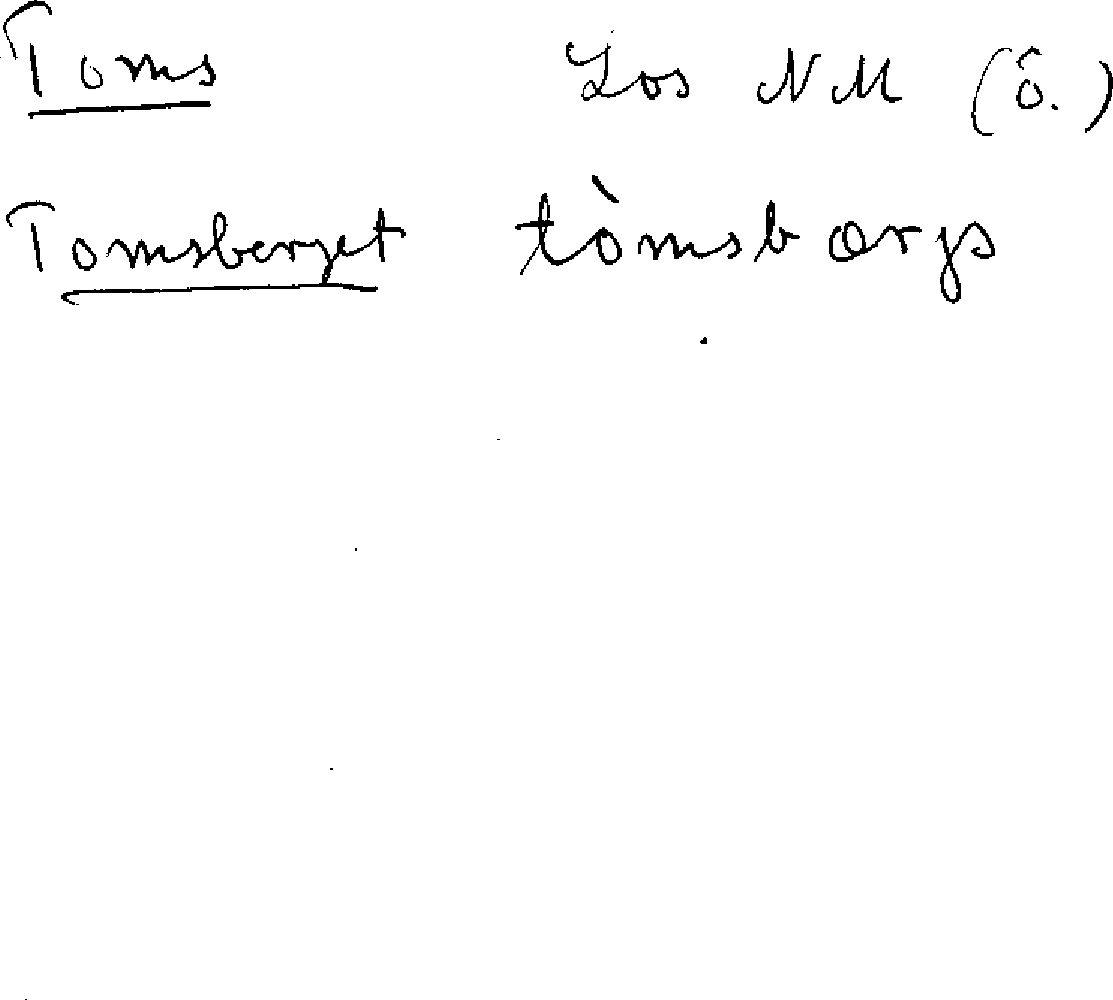 Toms Los NM (ö.)
Tomsberget tòmsbærjs